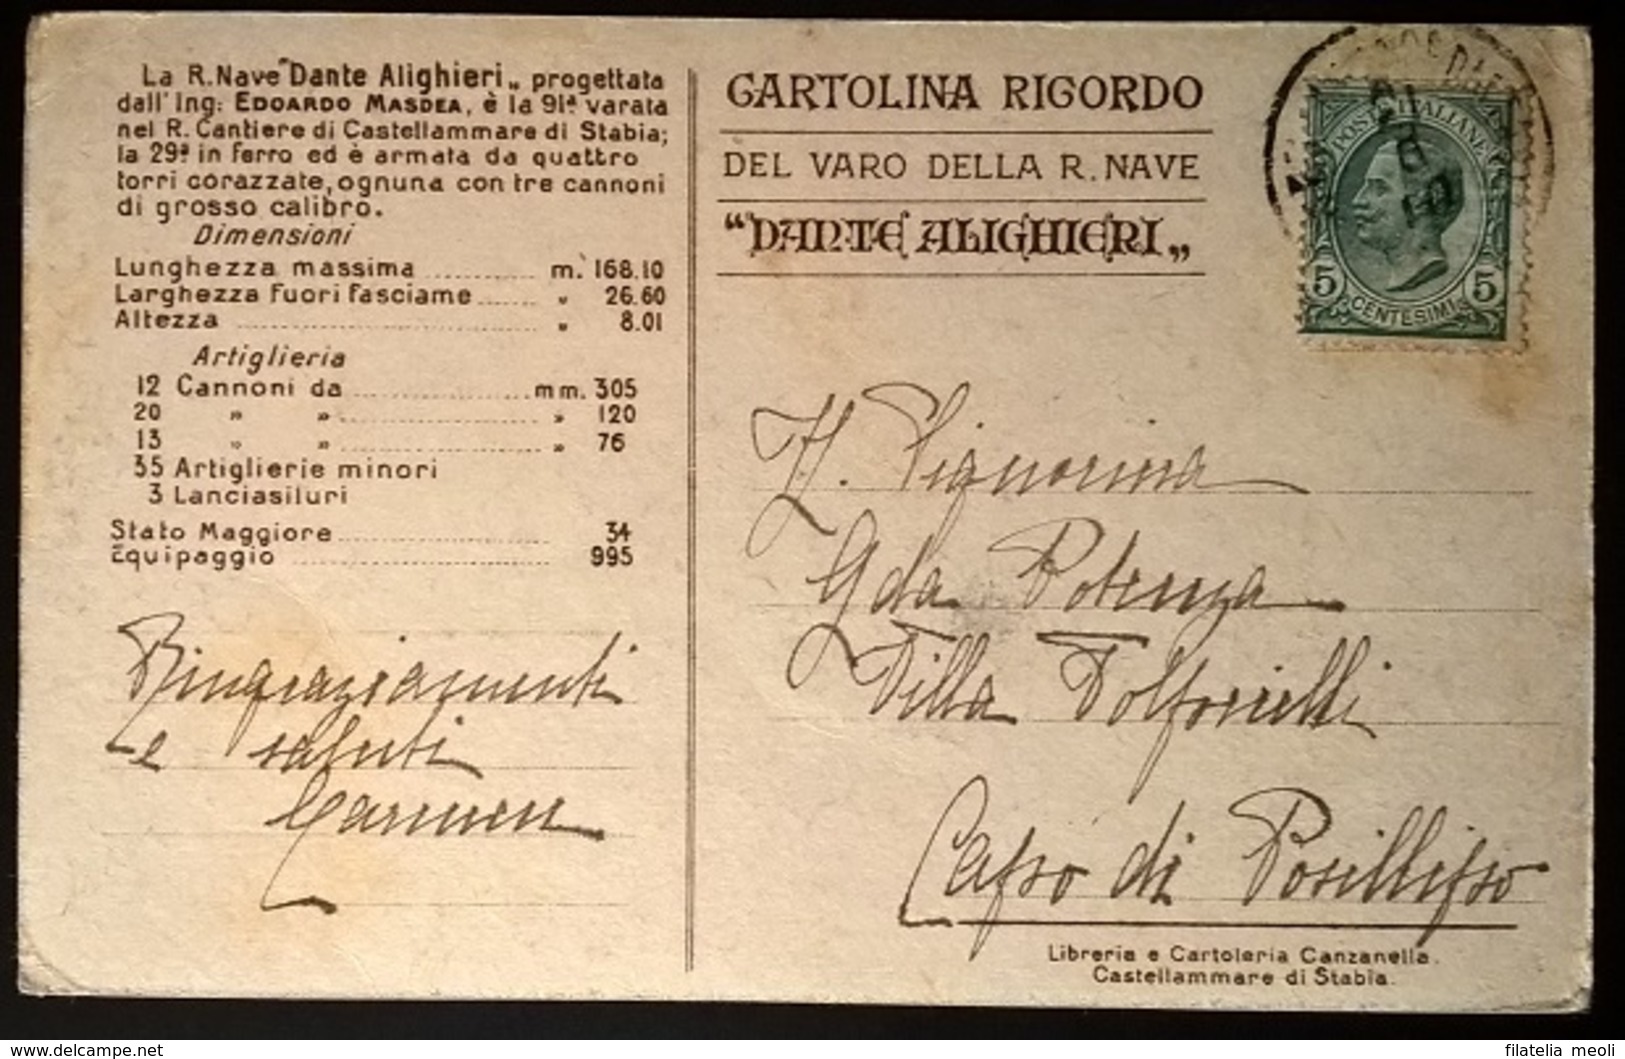 La R. Nave "Dante Alighieri„ progettata
dall' Ing: EDOARDO MASDEA, è la 91ª varata
nel R. Cantiere di Castellammare di Stabia;
la 29ª in ferro ed è armata da quattro
torri corazzate, ognuna con tre cannoni
di grosso calibro.
Dimensioni
Lunghezza massima ............ m. 168.10
Larghezza fuori fasciame ...... „ 26.60
Altezza ............ „ 8.01
Artiglieria
12 Cannoni da ............ mm. 305
20 » » ............ » 120
13 » » ............ » 76
35 Artiglierie minori
3 Lanciasiluri
Stato Maggiore ............ 34
Equipaggio ............ 995
Ringraziamenti
e saluti
Carmen
CARTOLINA RICORDO
DEL VARO DELLA R. NAVE
"DANTE ALIGHIERI„
POSTE ITALIANE
5 5
CENTESIMI
Signorina
Potenza
Villa
Capo di Posillipo
Libreria e Cartoleria Canzanella.
Castellammare di Stabia.
filatelia meoli